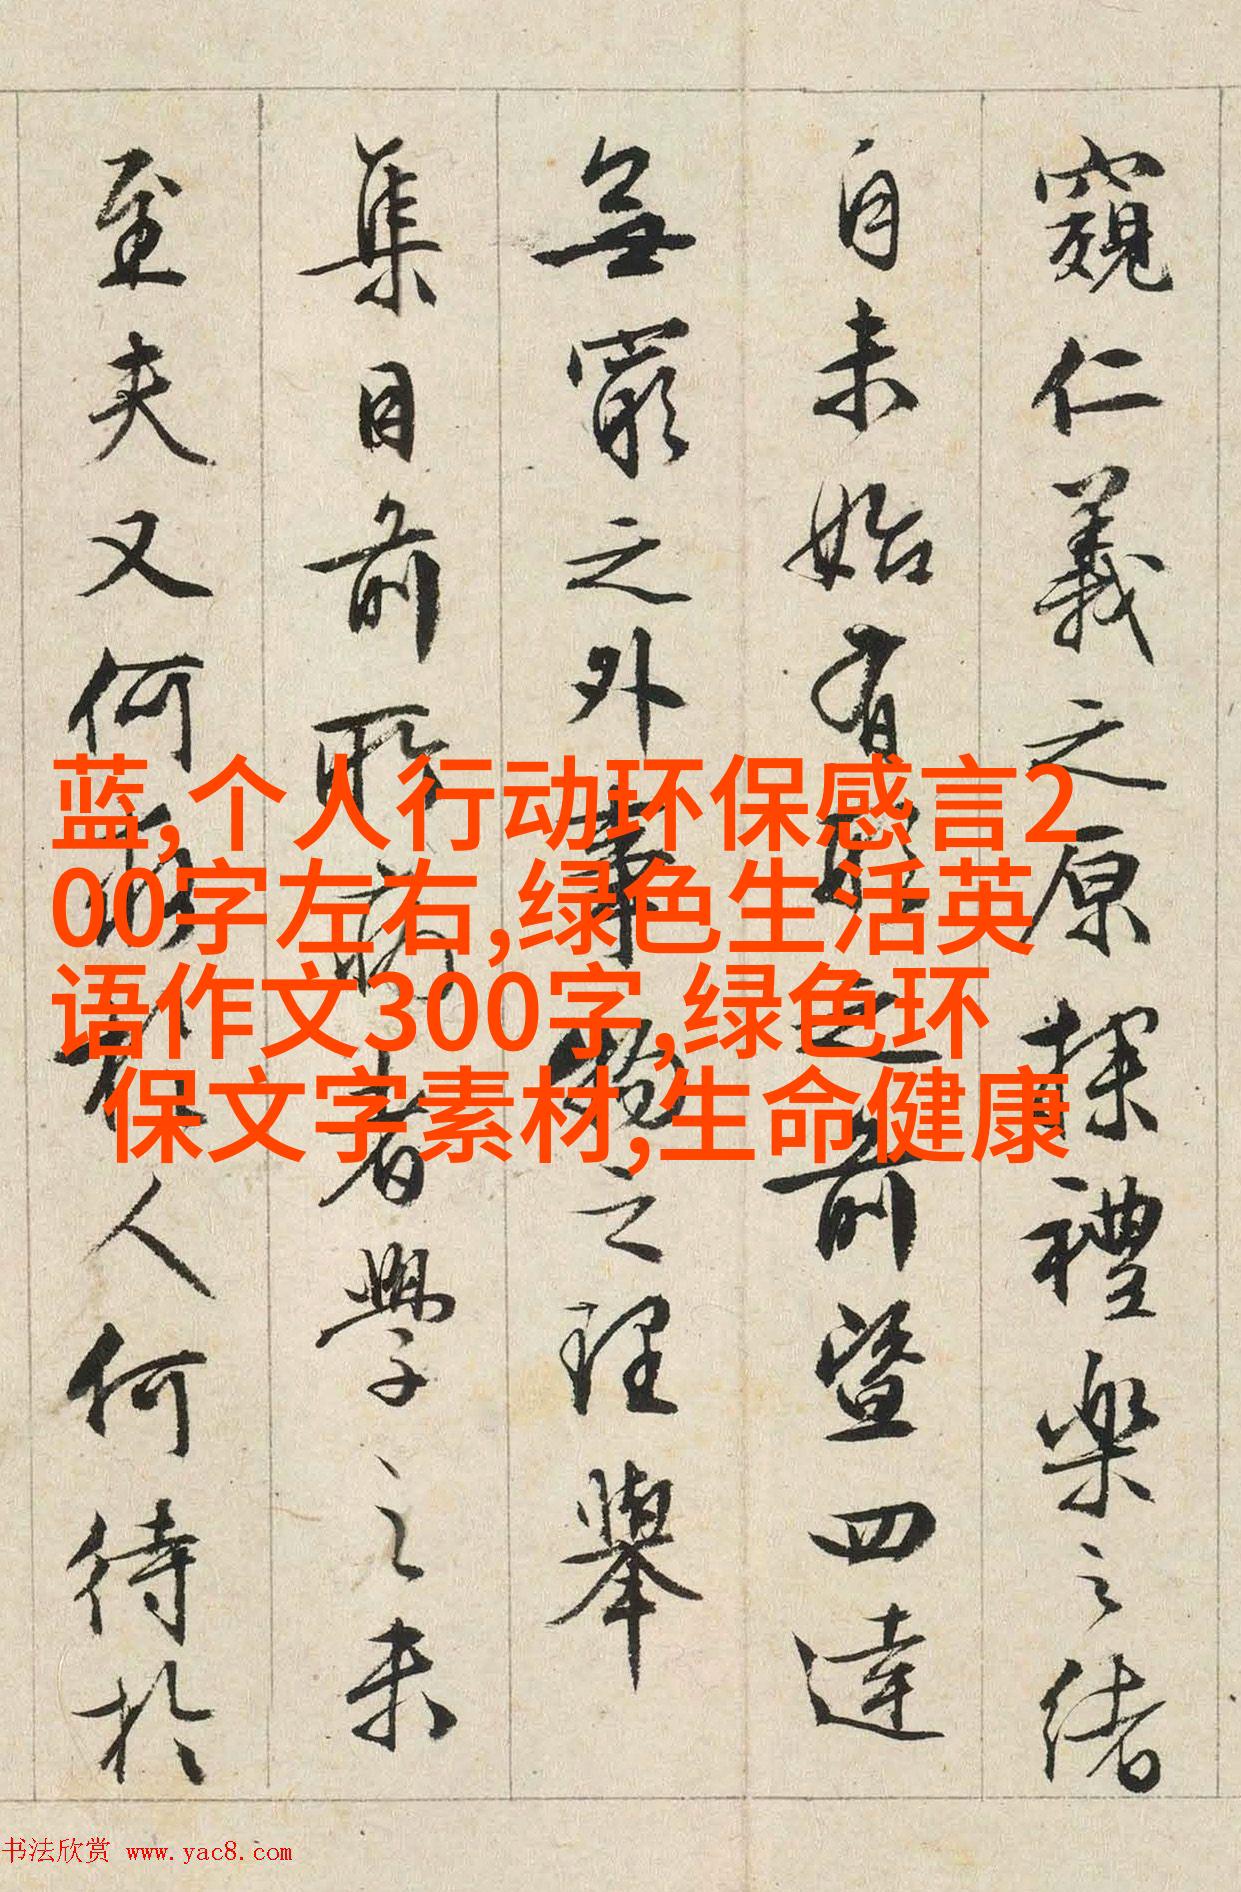 窺仁義之原探禮樂之緒
自未始有形之前暨四達
無窮之外事物之理舉
集目前所謂者學之未
至夫又何假於人何待於
蓝,个人行动环保感言2
00字左右,绿色生活英
语作文300字,绿色环
保文字素材,生命健康
书法欣赏 www.yac8.com